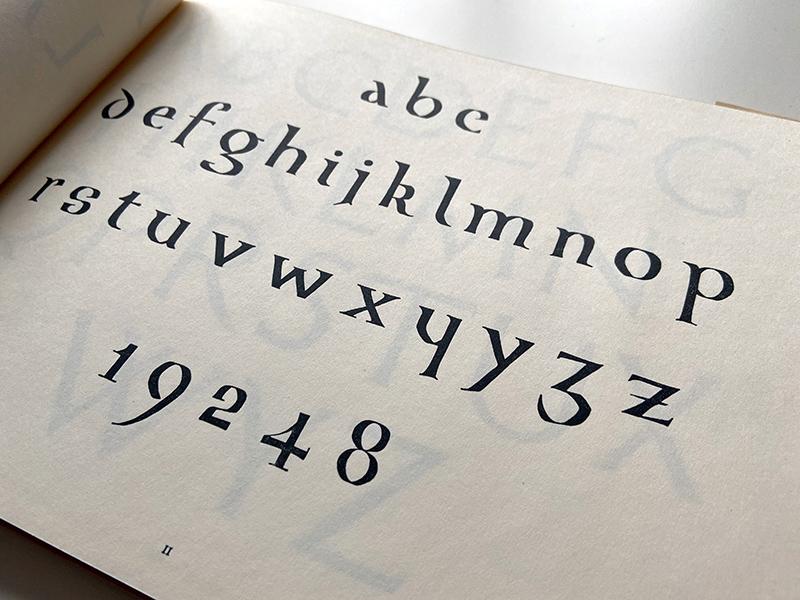 abc
defghijklmnop
rstuvwxyyzz
19248
II